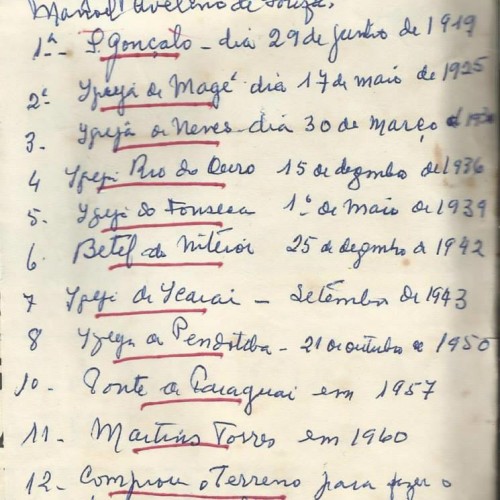 Manoel Avelino de Souza.
1ª- S. Gonçalo - dia 29 de Junho de 1919
2ª Igreja de Magé dia 17 de maio de 1925
3. Igreja de Neves dia 30 de março
4 Igreja Rio do Ouro 15 de dezembro de 1936
5. Igreja do Fonseca 1º de Maio de 1939
6. Betel de Niterói 25 de dezembro de 1942
7 Igreja de Icaraí - Setembro de 1943
8 Igreja de Pendotiba - 21 de outubro de 1950
10. Ponte de Paraguai em 1957
11. Martins Torres em 1960
12. Comprou o Terreno para fazer o